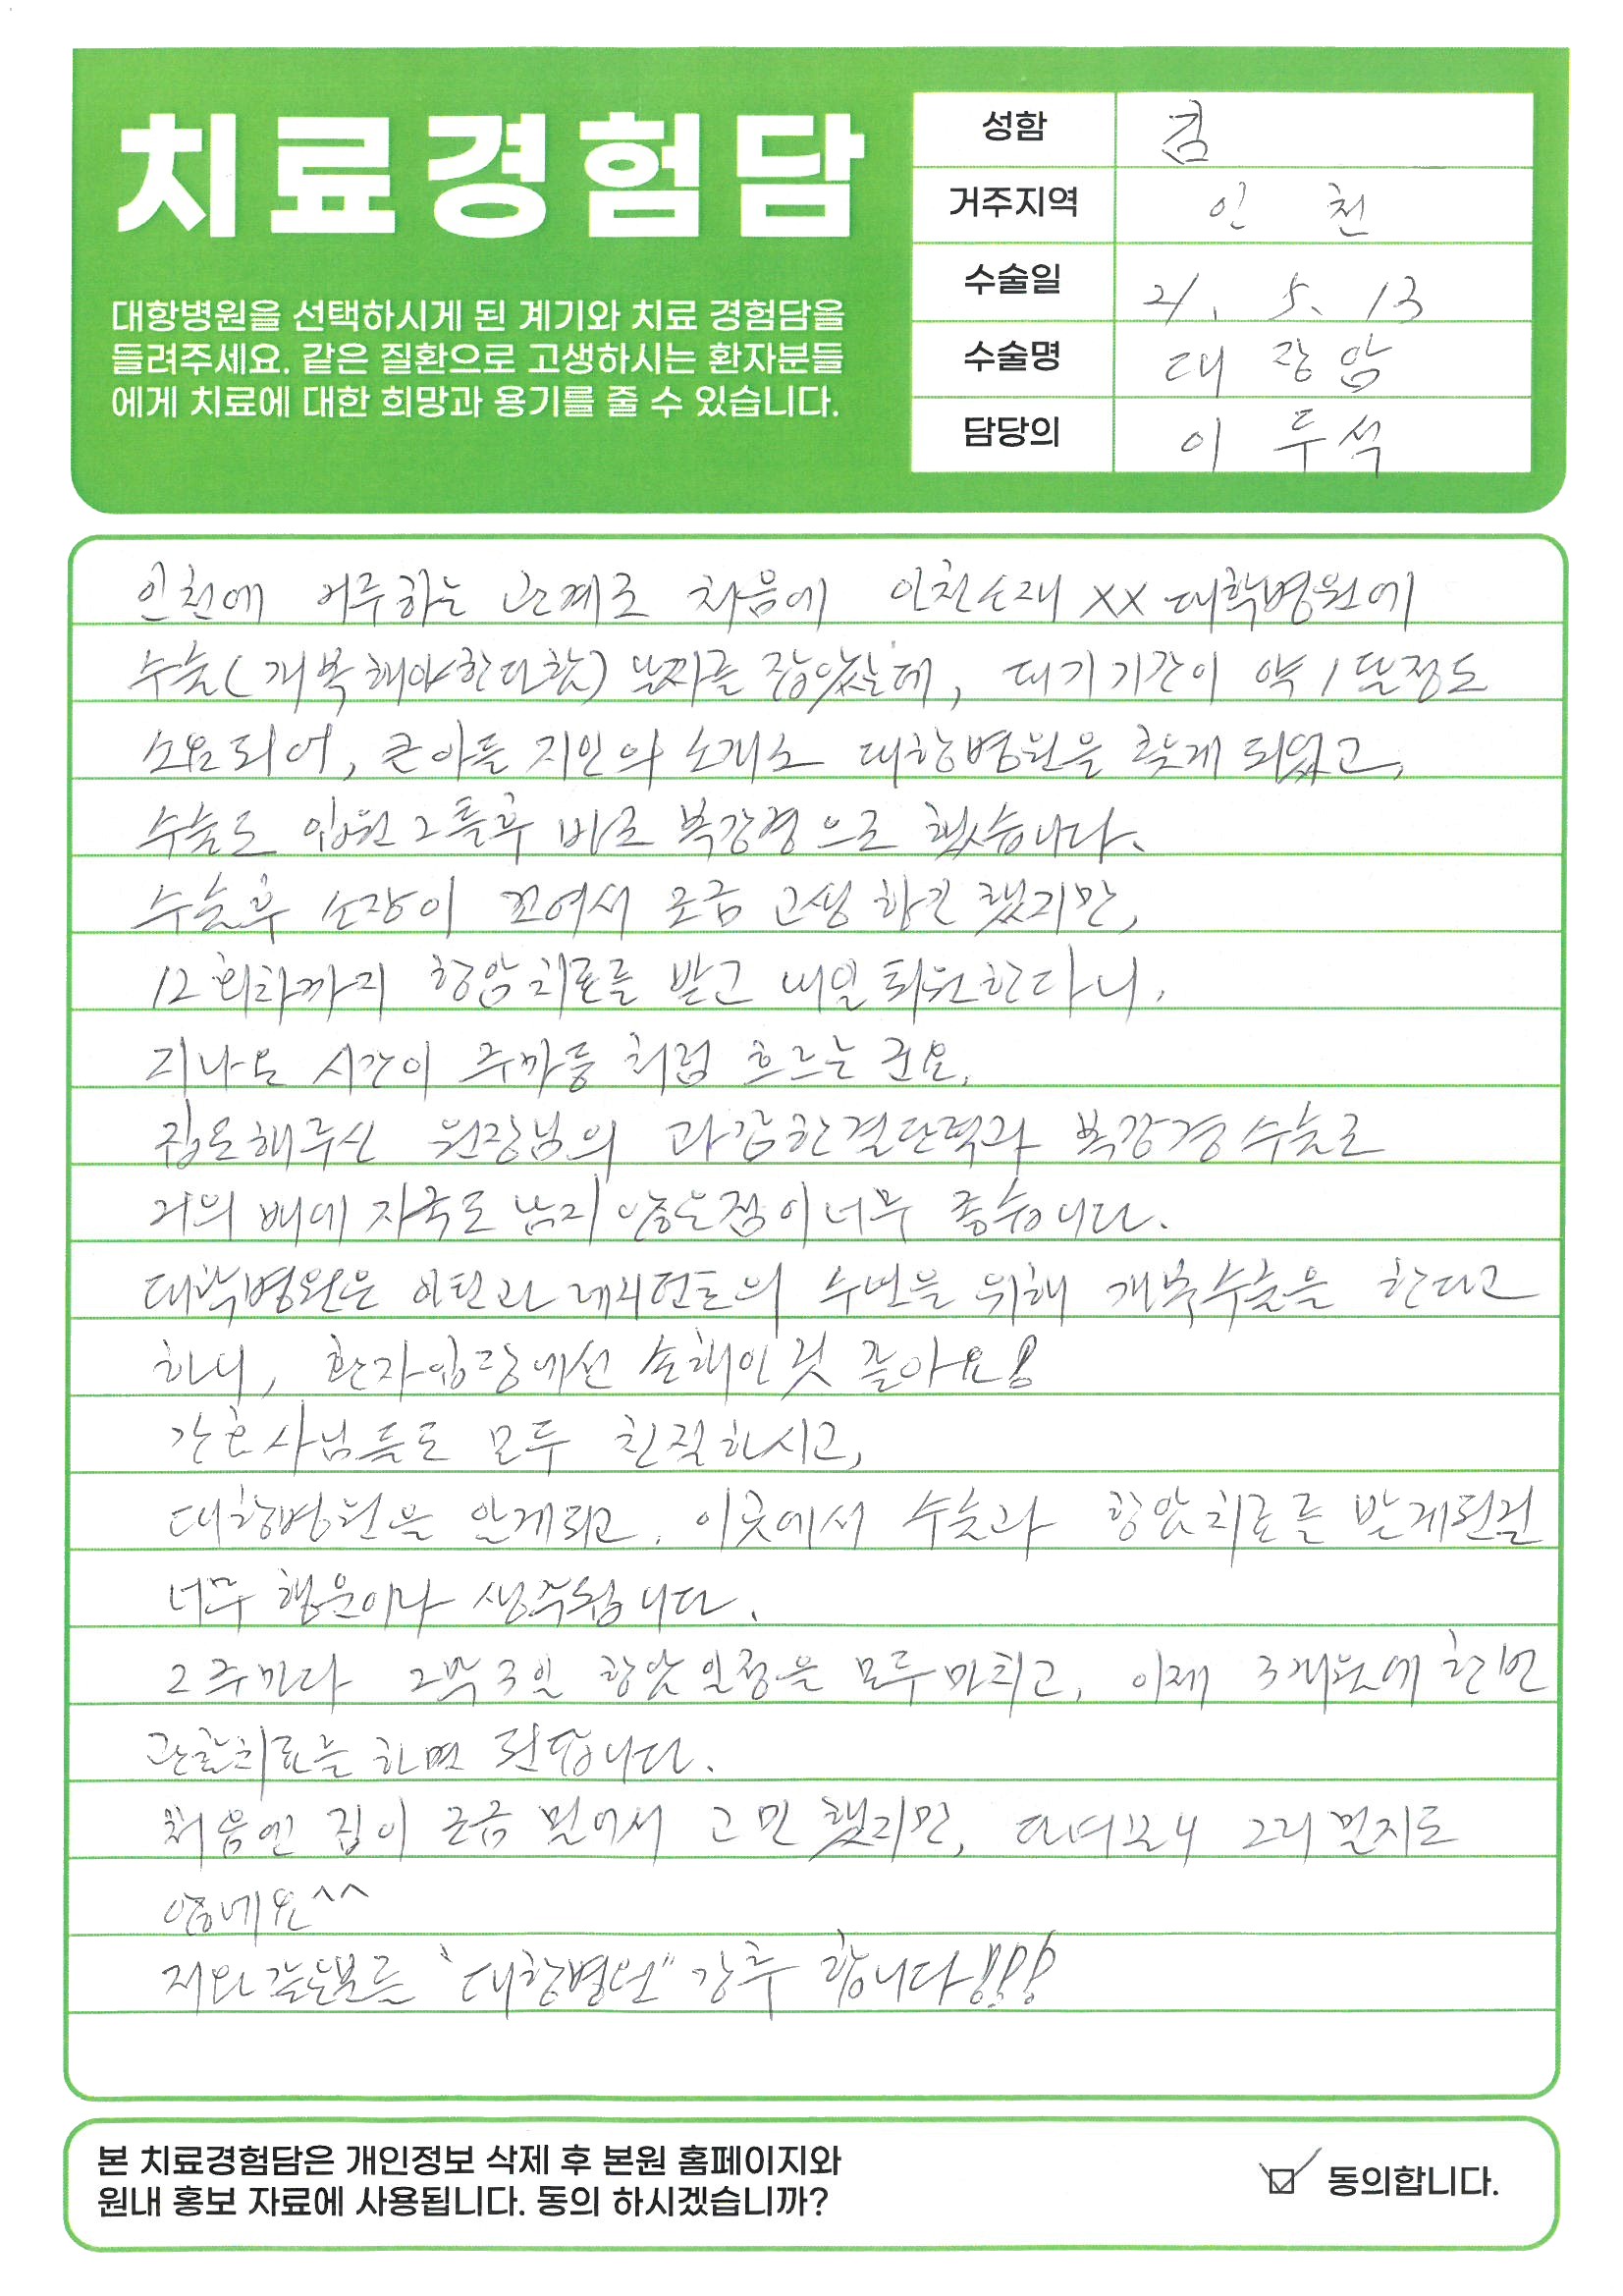 치료경험담
대항병원을 선택하시게 된 계기와 치료 경험담을
들려주세요. 같은 질환으로 고생하시는 환자분들
에게 치료에 대한 희망과 용기를 줄 수 있습니다.
성함 김
거주지역 인천
수술일 21. 5. 13
수술명 대장암
담당의 이두석
인천에 거주하는 관계로 처음에 인천소재 XX대학병원에
수술(개복해야한다함) 날짜를 잡았는데, 대기기간이 약 1달정도
소요되어, 큰아들 지인의 소개로 대항병원을 찾게 되었고,
수술도 입원 2틀후 바로 복강경으로 했습니다.
수술후 소장이 꼬여서 조금 고생하긴 했지만,
12회차까지 항암치료를 받고 내일 퇴원한다니.
지나온 시간이 주마등 처럼 흐르는군요.
집도해주신 원장님의 과감한결단력과 복강경수술로
거의 배에 자국도 남지 않은점이 너무 좋습니다.
대학병원은 인턴과 레지던트의 수련을 위해 개복수술을 한다고
하니, 환자입장에선 손해인것 같아요!
간호사님들도 모두 친절하시고,
대항병원을 알게되고, 이곳에서 수술과 항암치료를 받게된걸
너무 행운이라 생각됩니다.
2주마다 2박3일 항암일정을 모두마치고, 이제 3개월에 한번
관찰치료를 하면 된답니다.
처음엔 집이 조금 멀어서 고민했지만, 다녀보니 그리멀지도
않네요^^
저와같은분들 "대항병원" 강추 합니다!!!
본 치료경험담은 개인정보 삭제 후 본원 홈페이지와
원내 홍보 자료에 사용됩니다. 동의 하시겠습니까?
동의합니다.